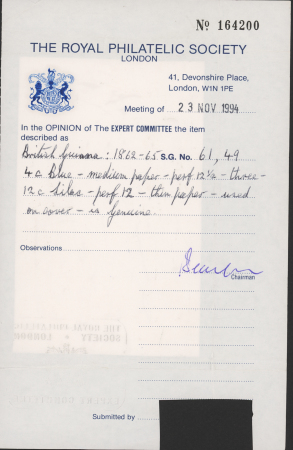 No 164200
THE ROYAL PHILATELIC SOCIETY
LONDON
41, Devonshire Place,
London, W1N 1PE
Meeting of 23 NOV 1994
In the OPINION of The EXPERT COMMITTEE the item
described as
British Guiana: 1862-65 S.G. No. 61, 49
4c blue - medium paper - perf 12½ - three -
12c lilac - perf 12 - thin paper - used
on cover - is Genuine.
Observations
Chairman
THE ROYAL PHILATELIC
SOCIETY
LONDON
Submitted by